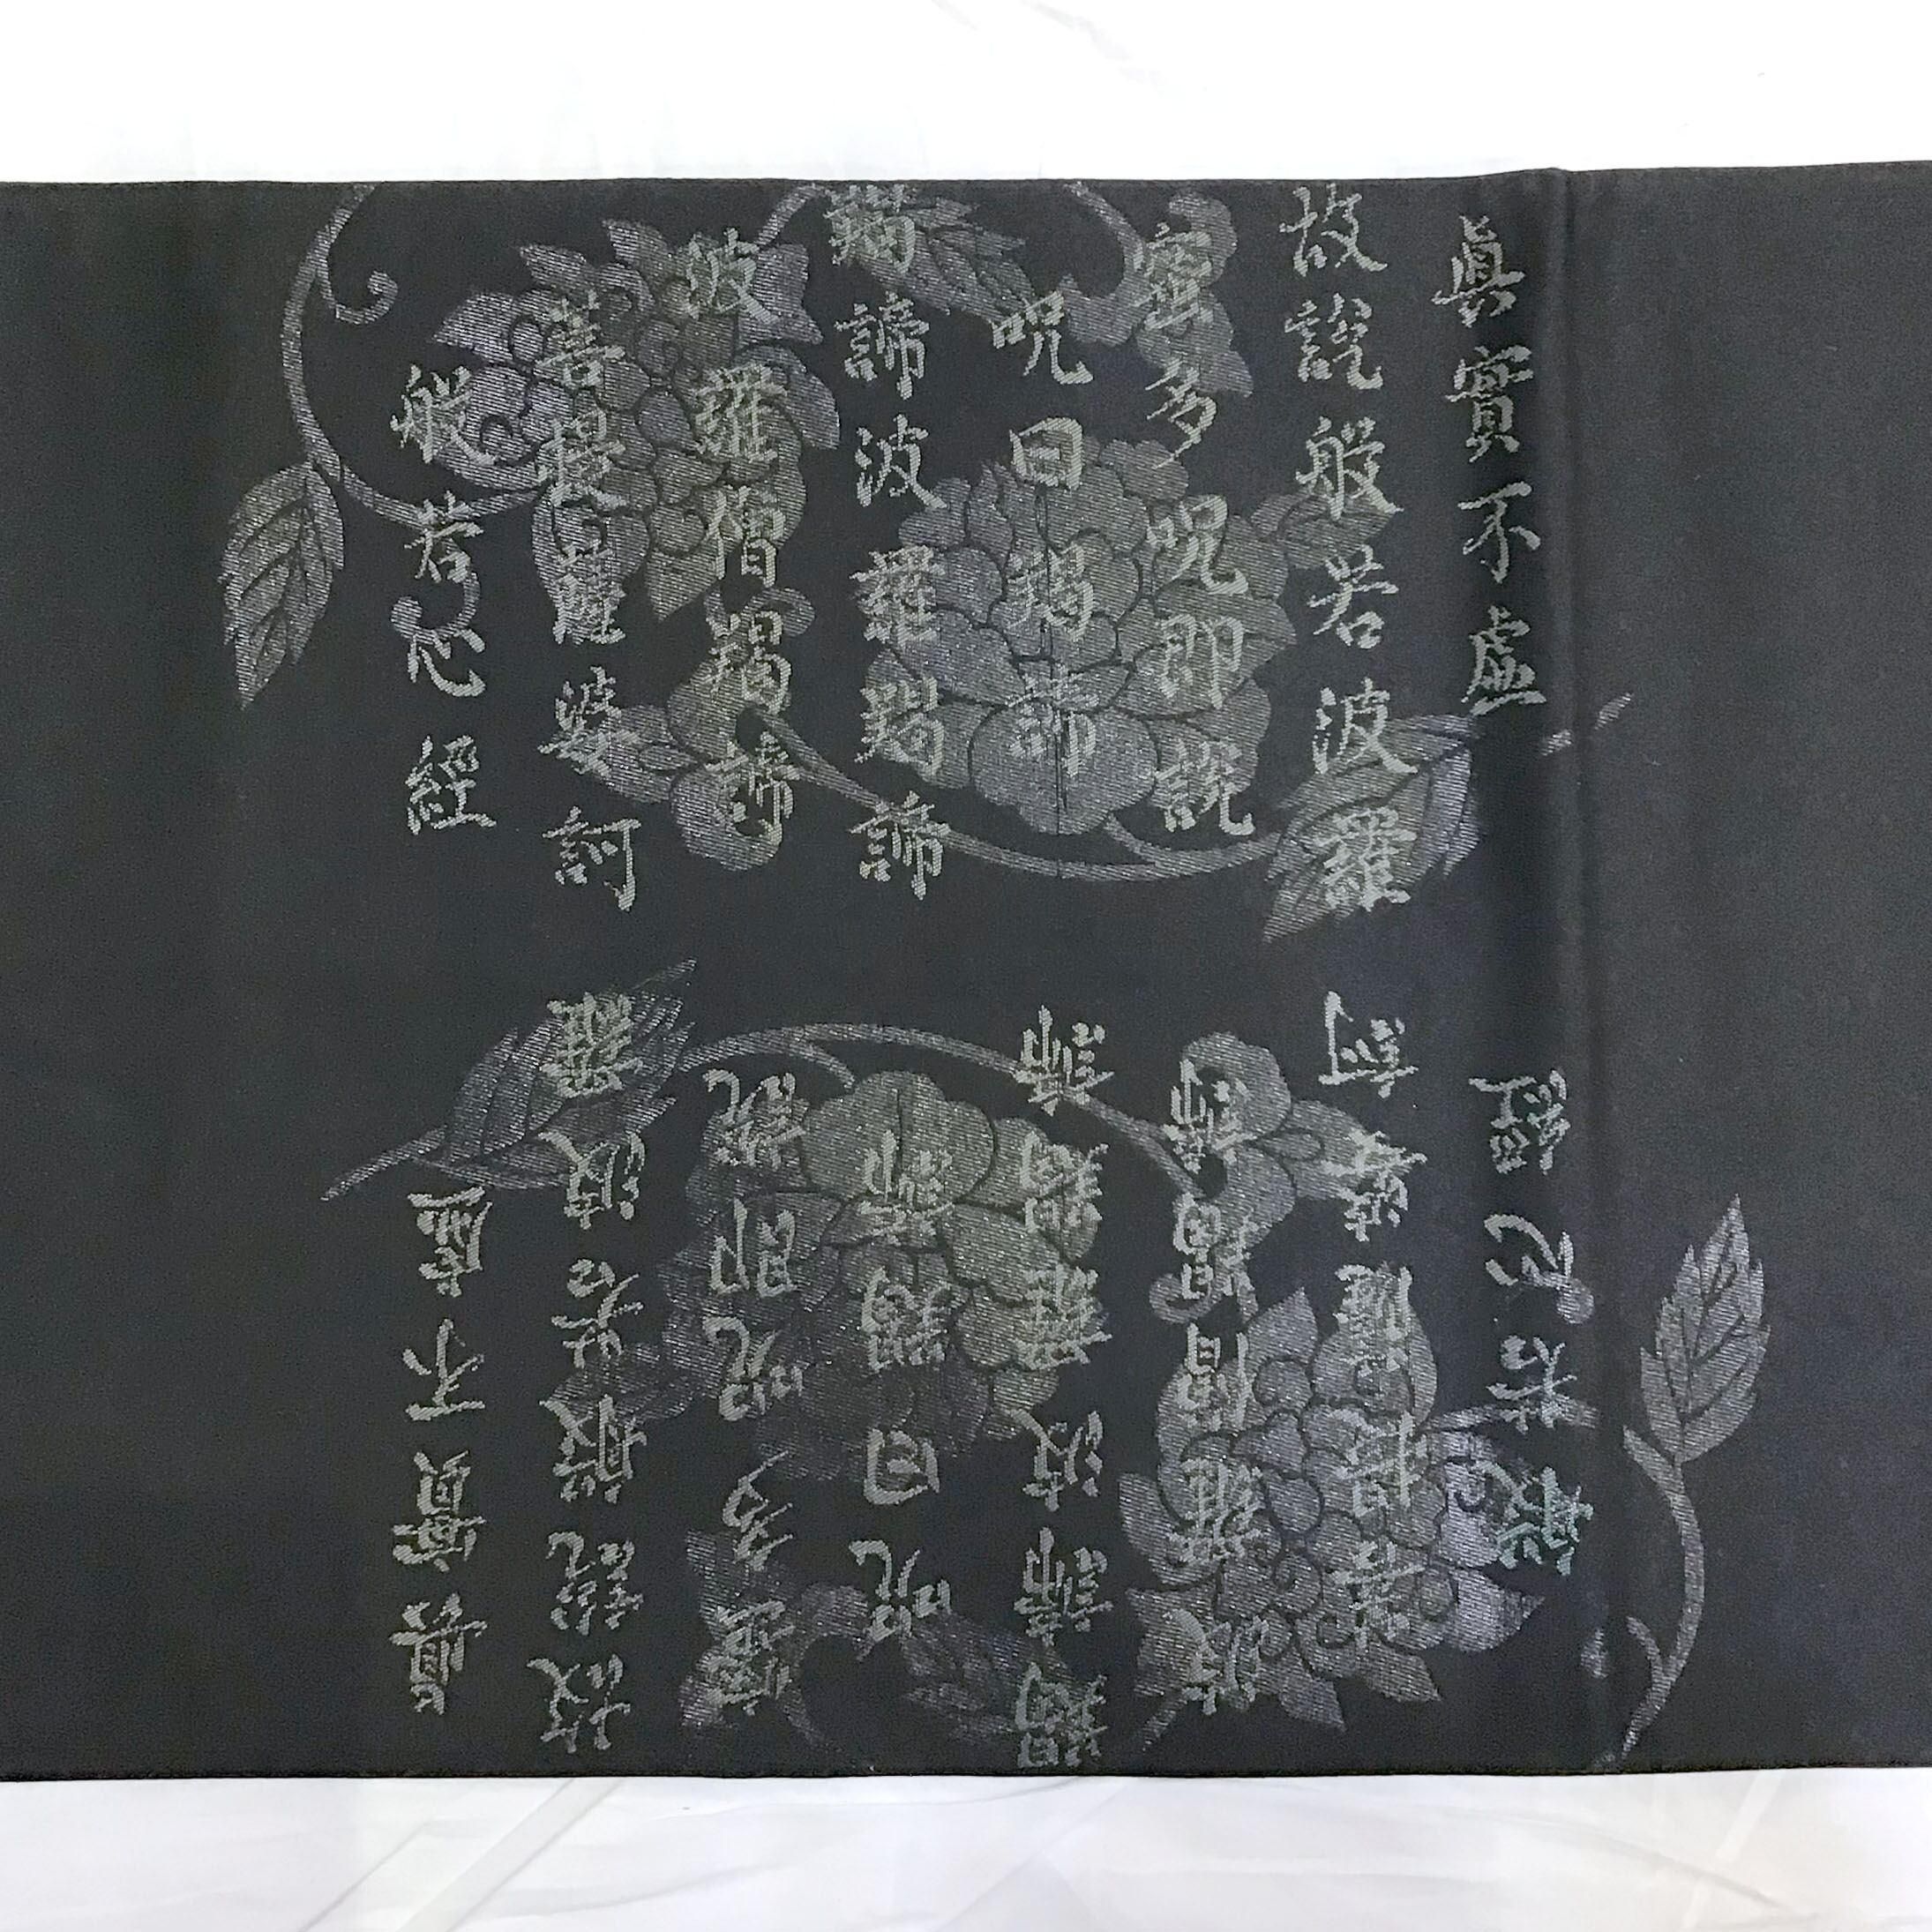 眞實不虛
故説般若波羅
蜜多呪即説
呪曰羯諦
羯諦波羅羯諦
波羅僧羯諦
菩提薩婆訶
般若心經
眞實不虛
故説般若波羅
蜜多呪即説
呪曰羯諦
羯諦波羅羯諦
波羅僧羯諦
菩提薩婆訶
般若心經